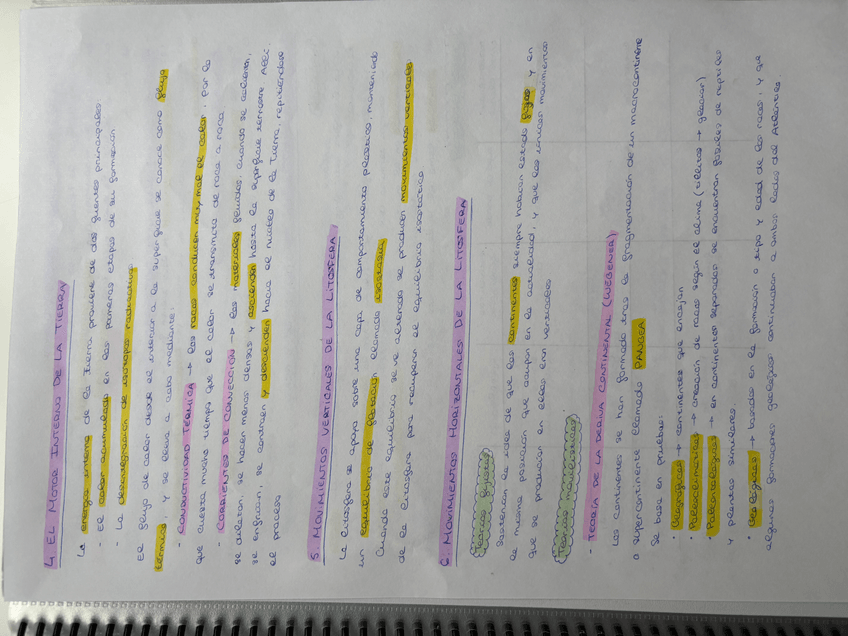 4. EL MOTOR INTERNO DE LA TIERRA
La energía interna de la Tierra proviene de dos fuentes principales:
- El calor acumulado en las primeras etapas de su formación.
- La desintegración de isótopos radiactivos.
El flujo de calor desde el interior a la superficie se conoce como flujo
térmico, y se lleva a cabo mediante:
- CONDUCTIVIDAD TÉRMICA → las rocas conducen muy mal el calor, por lo
que cuesta mucho tiempo que el calor se transmita de roca a roca.
- CORRIENTES DE CONVECCIÓN → los materiales fluidos, cuando se calientan,
se dilatan, se hacen menos densos y ascienden hasta la superficie terrestre. Allí,
se enfrían, se contraen y descienden hacia el núcleo de la Tierra, repitiéndose
el proceso.
5. MOVIMIENTOS VERTICALES DE LA LITOSFERA
La litosfera se apoya sobre una capa de comportamiento plástico, manteniendo
un equilibrio de flotación llamado isostasia.
Cuando este equilibrio se ve alterado se producen movimientos verticales
de la litosfera para recuperar el equilibrio isostático.
6. MOVIMIENTOS HORIZONTALES DE LA LITOSFERA
Teorías fijistas
Sostenían la idea de que los continentes siempre habían estado fijos y en
la misma posición que ocupan en la actualidad, y que los únicos movimientos
que se producían en ellos eran verticales.
Teorías movilistas
- TEORÍA DE LA DERIVA CONTINENTAL (WEGENER)
Los continentes se han formado tras la fragmentación de un macrocontinente
o supercontinente llamado PANGEA.
Se basa en pruebas:
• Geográficas → continentes que encajan
• Paleoclimáticas → creación de rocas según el clima (tillitas → glaciar)
• Paleontológicas → en continentes separados se encuentran fósiles de reptiles
y plantas similares.
• Geológicas → basadas en la formación o tipo y edad de las rocas, y que
algunas formaciones geológicas continuaban a ambos lados del Atlántico.